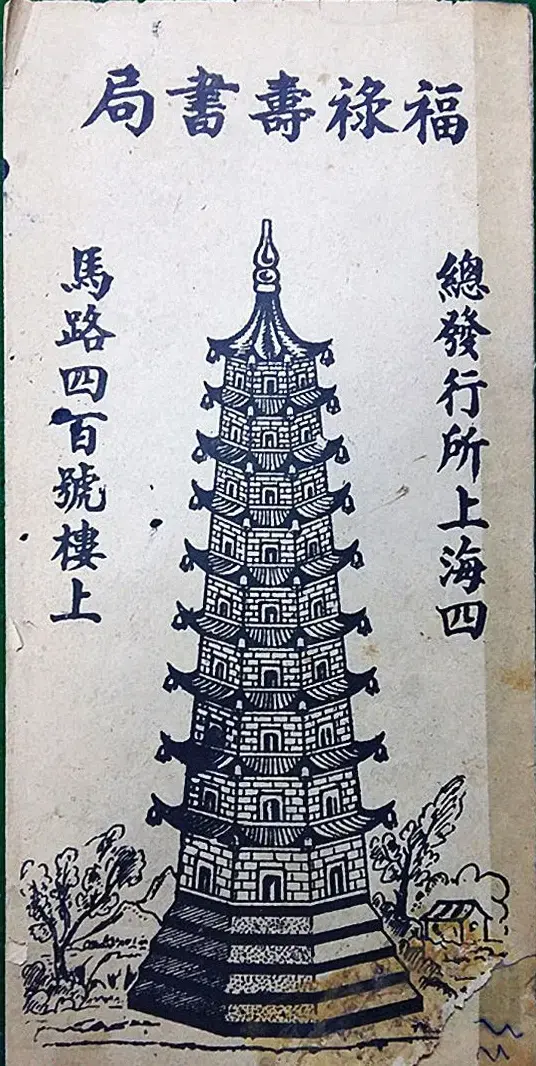 福祿壽書局
總發行所上海四
馬路四百號樓上